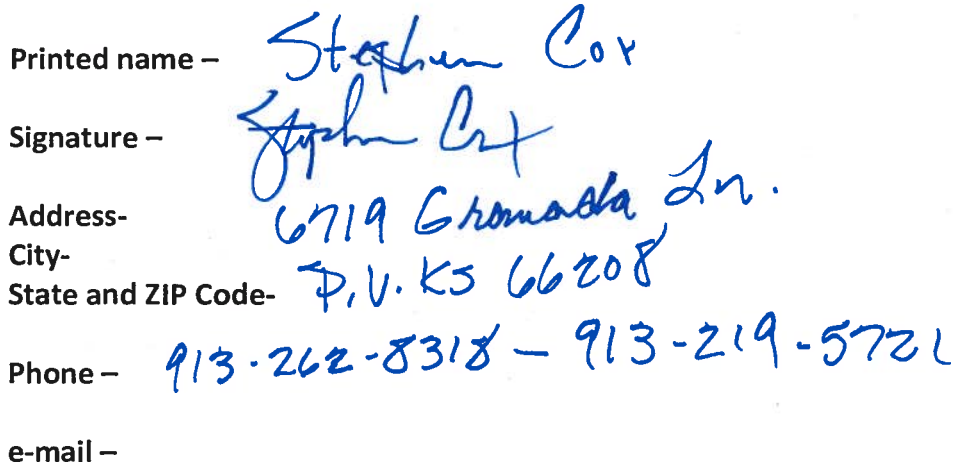 Printed name – Stephen Cox
Signature – Stephen Cox
Address- 6719 Granada Ln.
City-
State and ZIP Code- P.V. KS 66208
Phone – 913-262-8318 – 913-219-5721
e-mail –